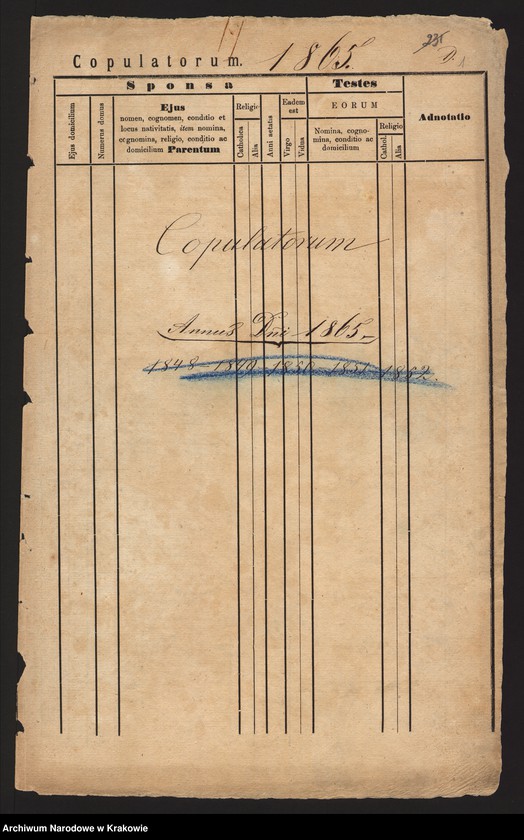 Copulatorum. 1865.
Sponsa
Testes
Ejus domicilium
Numerus domus
Ejus
nomen, cognomen, conditio et
locus nativitatis, item nomina,
cognomina, religio, conditio ac
domicilium Parentum
Religio
Catholica
Alia
Anni aetatis
Eadem
est
Virgo
Vidua
EORUM
Nomina, cogno-
mina, conditio ac
domicilium
Religio
Cathol.
Alia
Adnotatio
Copulatorum
Annus Dni 1865.
1848 1849 1850 1851 1852.
Archiwum Narodowe w Krakowie